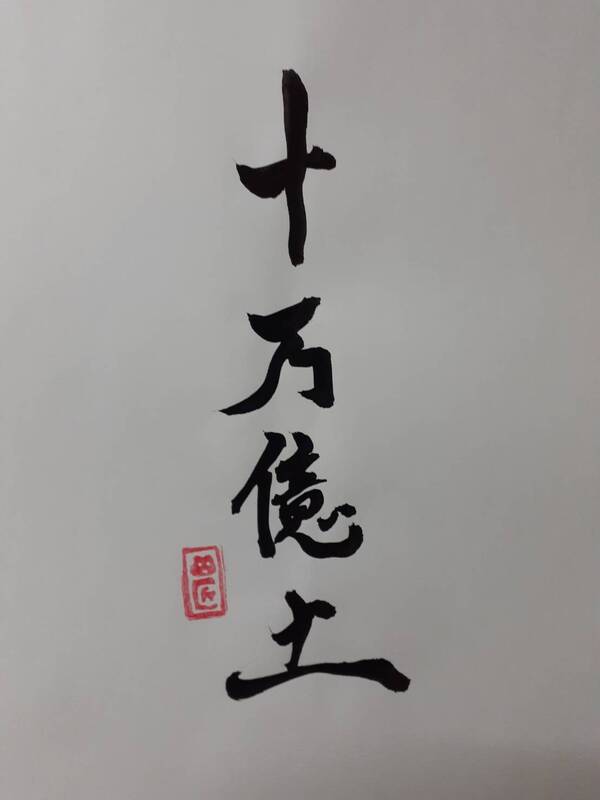 十万億土